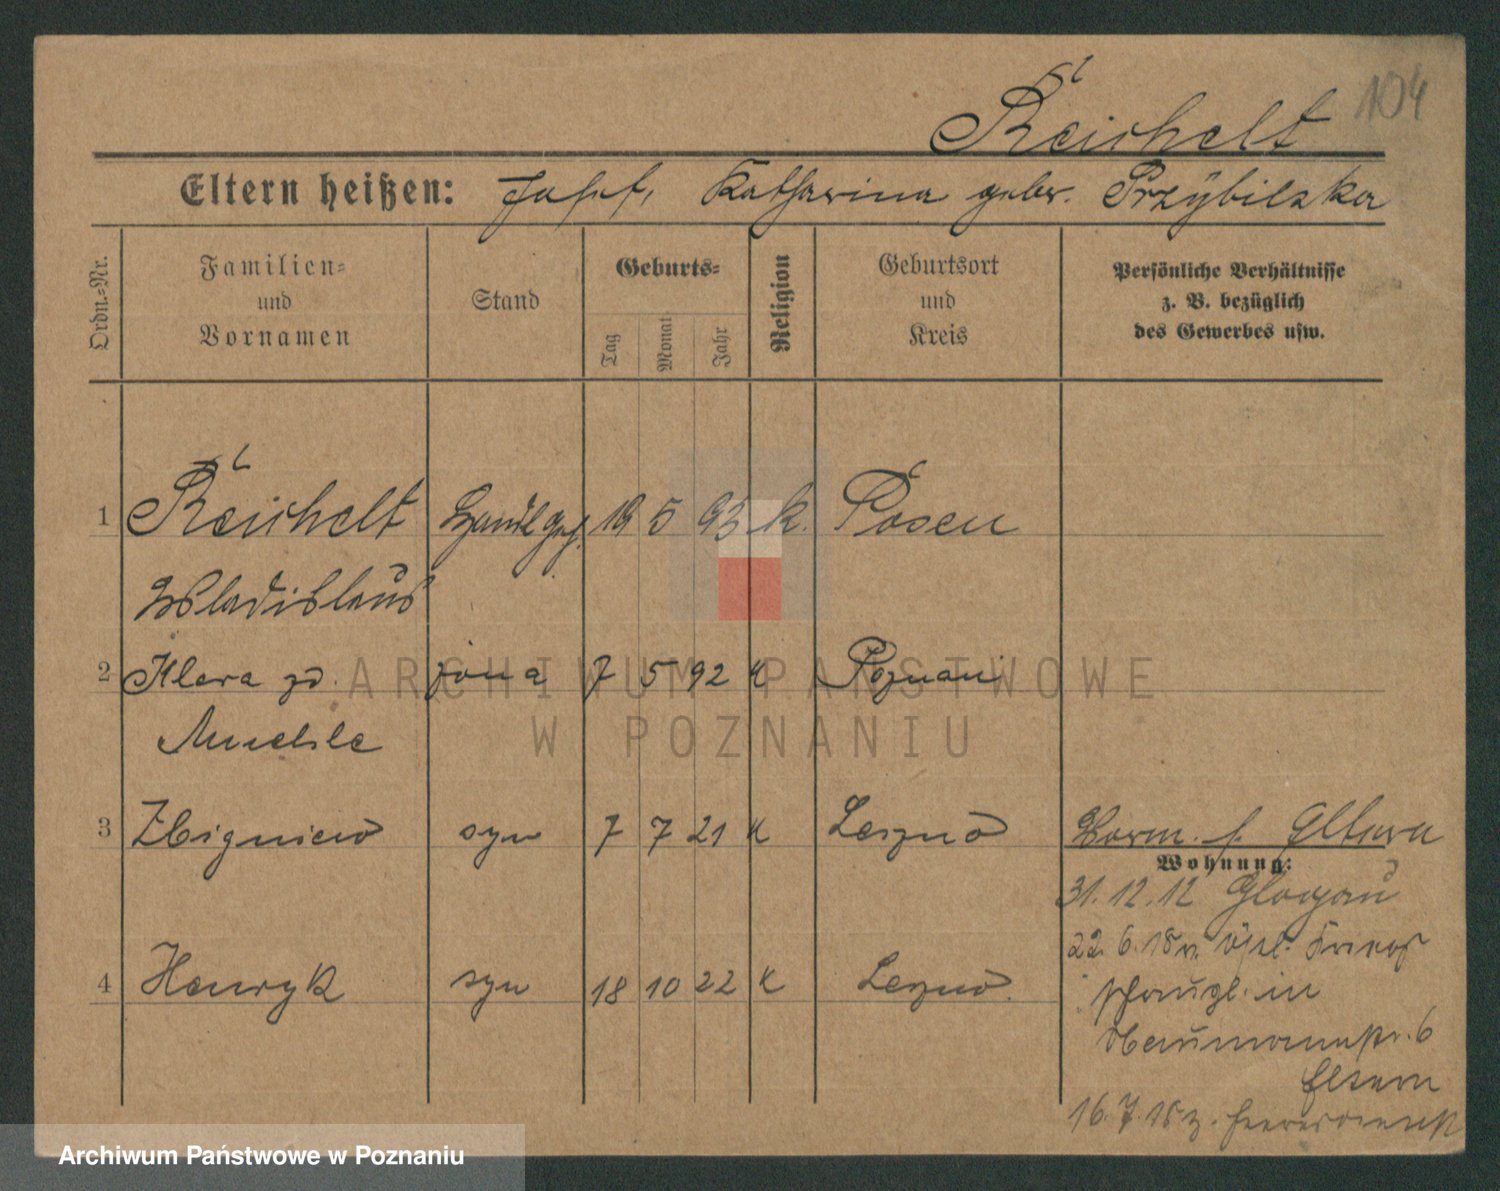 104
Reichelt
Eltern heißen: Josef, Katharina geb. Przybilska
Ordn.=Nr.
Familien=
und
Vornamen
Stand
Geburts=
Tag
Monat
Jahr
Religion
Geburtsort
und
Kreis
Persönliche Verhältnisse
z. B. bezüglich
des Gewerbes usw.
1 Reichelt 19 5 93 k. Posen
Wladislaus
2 Klara zd. żona 7 5 92 K Poznań
3 Zbigniew syn 7 7 21 K Leszno Vorm. s. Eltern
Wohnung:
31.12.12 Glogau
22.6.18 v.
4 Henryk syn 18 10 22 K Leszno
in
Naumannstr. 6
Eltern
16.7.18 z. Heeresdienst
ARCHIWUM PAŃSTWOWE
W POZNANIU
Archiwum Państwowe w Poznaniu